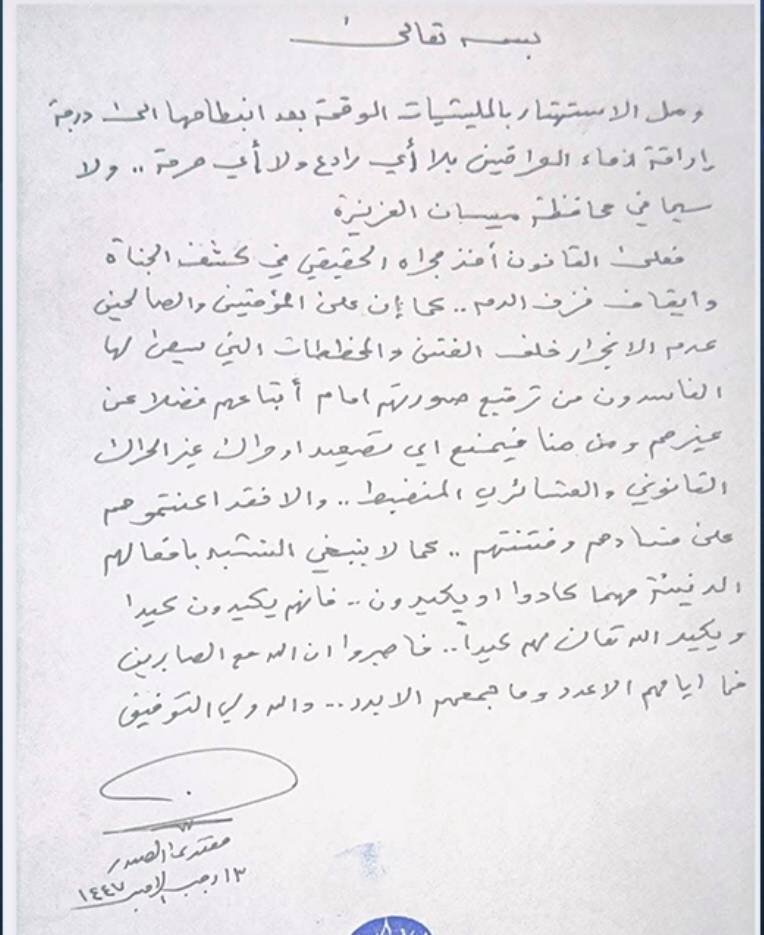 بسمه تعالى
وصل الاستهتار بالمليشيات الوقحة بعد انبطاحها الى درجة
إراقة دماء العراقيين بلا أي رادع ولا أي حرمة .. ولا
سيما في محافظة ميسان العزيزة
فعلى القانون أخذ مجراه الحقيقي في كشف الجناة
وايقاف نزف الدم .. كما إن على المؤمنين والصالحين
عدم الانجرار خلف الفتن والمخططات التي يسعى لها
الفاسدون من ترقيع صورتهم امام أتباعهم فضلا عن
غيرهم ومن هنا فيمنع اي تصعيد او حراك غير الحراك
القانوني والعشائري المنضبط .. والا فقد اعنتموهم
على فسادهم وفتنتهم .. كما لا ينبغي التشبه بافعالهم
الدنيئة مهما كادوا او يكيدون .. فانهم يكيدون كيدا
ويكيد الله تعالى لهم كيداً .. فاصبروا ان الله مع الصابرين
فما ايامهم الا عدد وما جمعهم الا بدد ... والله ولي التوفيق
مقتدى الصدر
١٣ رجب الاصب ١٤٤٧